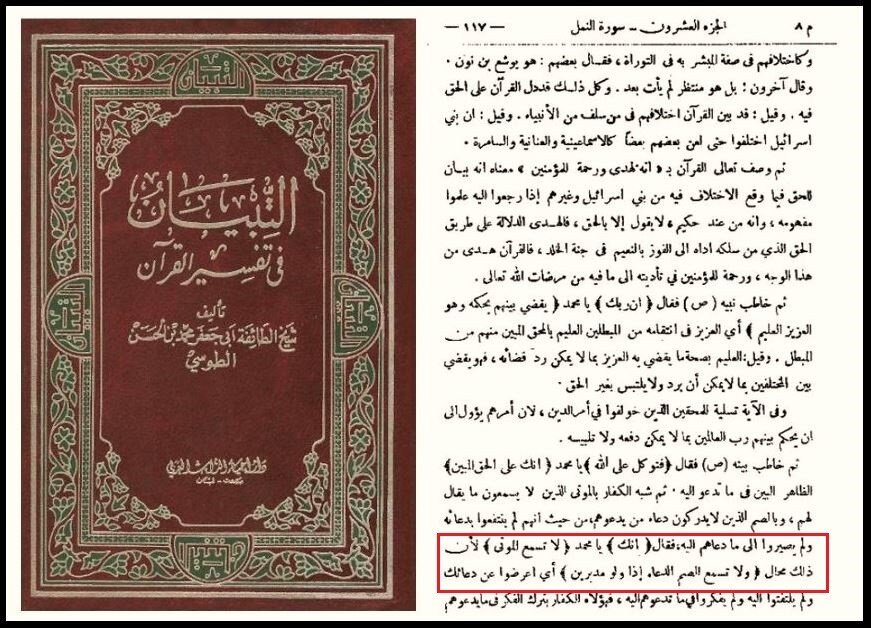 التبيان
التبيان
في تفسير القرآن
تأليف
شيخ الطائفة أبي جعفر محمد بن الحسن
الطوسي
دار إحياء التراث العربي
بيروت - لبنان
التبيان
التبيان
التبيان
م ٨ الجزء العشرون - سورة النمل - ١١٧ -
وكاختلافهم في صفة المبشر به في التوراة ، فقال بعضهم : هو يوشع بن نون .
وقال آخرون : بل هو منتظر لم يأت بعد . وكل ذلك قد دل القرآن على الحق
فيه . وقيل : قد بين القرآن اختلافهم في من سلف من الأنبياء . وقيل : ان بني
اسرائيل اختلفوا حتى لعن بعضهم بعضاً كالاسماعينية والعنانية والسامرة .
ثم وصف تعالى القرآن بـ « انه لهدى ورحمة للمؤمنين » معناه انه بيان
للحق فيما وقع الاختلاف فيه من بني اسرائيل وغيرهم إذا رجعوا اليه علموا
مفهومه ، وانه من عند حكيم ، لا يقول إلا بالحق ، فالهدى الدلالة على طريق
الحق الذي من سلكه اداه الى الفوز بالنعيم في جنة الخلد ، فالقرآن هدى من
هذا الوجه ، ورحمة للمؤمنين في تأديته الى ما فيه من مرضات الله تعالى .
ثم خاطب نبيه (ص) فقال ﴿ ان ربك ﴾ يا محمد ﴿ يقضي بينهم بحكمه وهو
العزيز العليم ﴾ أي العزيز في انتقامه من المبطلين العليم بالمحق المبين منهم من
المبطل . وقيل: العليم بصحة ما يقضي به العزيز بما لا يمكن رد قضائه ، فهو يقضي
بين المختلفين بما لا يمكن أن يرد ولا يلتبس بغير الحق .
وفى الآية تسلية للمحقين الذين خولفوا في أمر الدين ، لان أمرهم يؤول الى
ان يحكم بينهم رب العالمين بما لا يمكن دفعه ولا تلبيسه .
ثم خاطب نبيه (ص) فقال ﴿فتوكل على الله﴾ يا محمد ﴿ انك على الحق المبين﴾
الظاهر البين في ما تدعو اليه . ثم شبه الكفار بالموتى الذين لا يسمعون ما يقال
لهم ، وبالصم الذين لا يدركون دعاء من يدعوهم، من حيث انهم لم ينتفعوا بدعائه
ولم يصيروا الى ما دعاهم اليه، فقال ﴿ انك ﴾ يا محمد ﴿ لا تسمع الموتى ﴾ لأن
ذلك محال ﴿ ولا تسمع الصم الدعاء إذا ولو مدبرين ﴾ أي اعرضوا عن دعائك
ولم يلتفتوا اليه ولم يفكروا في ما تدعوهم اليه ، فهؤلاء الكفار بترك الفكر في ما يدعوهم